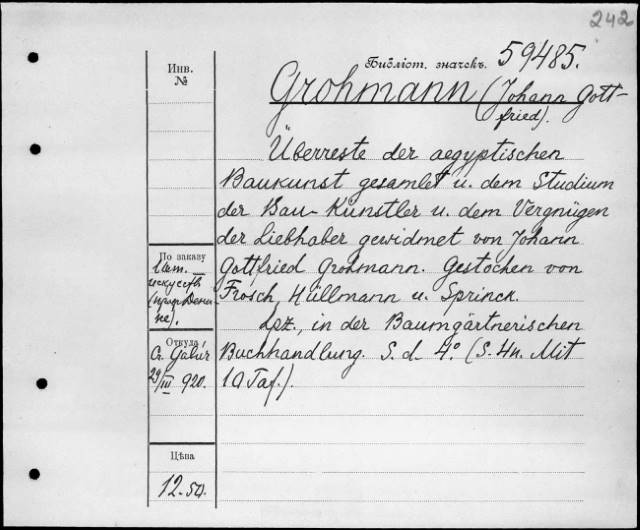 242
Библіот. значекъ. 59485.
Инв.
№
Grohmann (Johann Gott-
fried).
Überreste der aegyptischen
Baukunst gesamlet u. dem Studium
der Bau-Künstler u. dem Vergnügen
der Liebhaber gewidmet von Johann
Gottfried Grohmann. Gestochen von
Frosch, Hüllmann u. Sprinck.
Lpz., in der Baumgärtnerischen
Buchhandlung. S. d. 4° (S. 4n. Mit
10 Taf.).
По заказу
искусств
Откуда
29/III 920.
Цѣна
12.50.